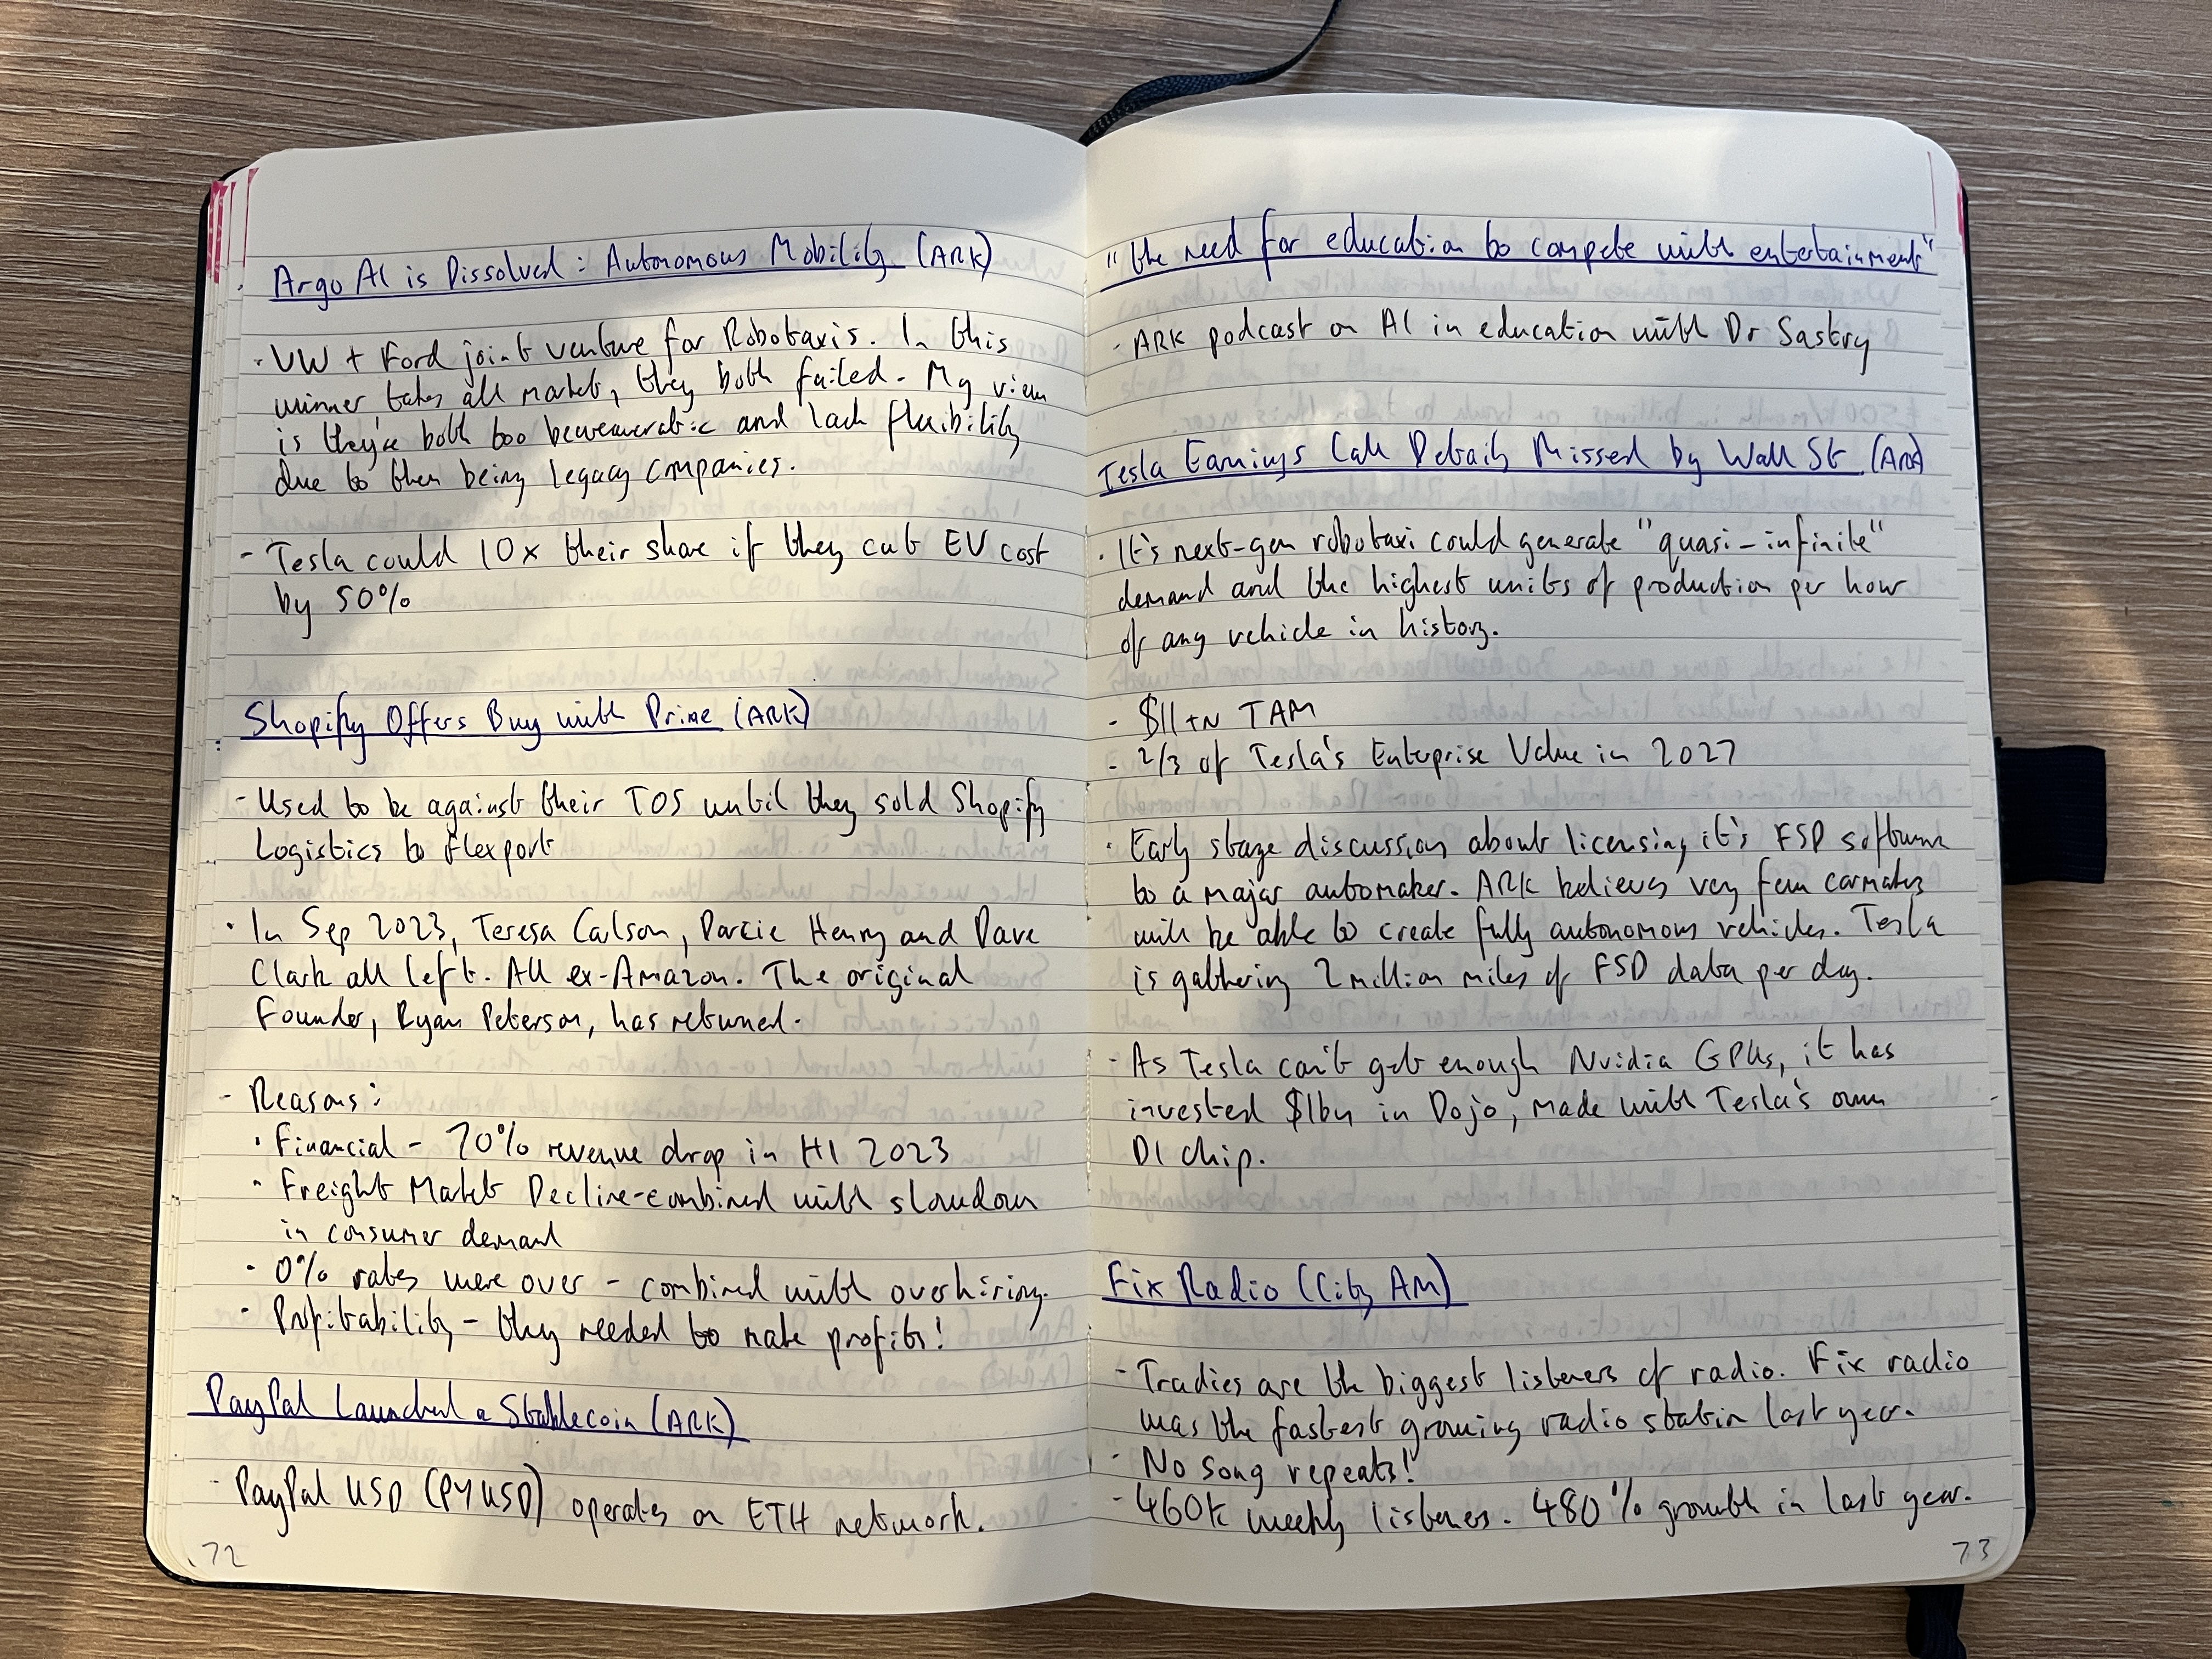 Argo AI is Dissolved: Autonomous Mobility (ARK)
· VW + Ford joint venture for Robotaxis. In this
winner takes all market, they both failed. My view
is they're both too beweaueratic and lack flexibility
due to them being legacy companies.
- Tesla could 10x their share if they cut EV cost
by 50%
Shopify Offers Buy with Prime (ARK)
- Used to be against their TOS until they sold Shopify
Logistics to Flexport
· In Sep 2023, Teresa Carlson, Darcie Henry and Dave
Clark all left. All ex-Amazon. The original
Founder, Ryan Peterson, has returned.
- Reasons:
· Financial - 70% revenue drop in H1 2023
· Freight Market Decline - combined with slowdown
in consumer demand
· 0% rates were over - combined with overhiring.
· Profitability - they needed to make profits!
PayPal Launched a Stablecoin (ARK)
- PayPal USD (PYUSD) operates on ETH network.
72
"the need for education to compete with entertainment"
- ARK podcast on AI in education with Dr Sastry
Tesla Earnings Call Details Missed by Wall St (ARK)
· It's next-gen robotaxi could generate "quasi-infinite"
demand and the highest units of production per hour
of any vehicle in history.
- $11tn TAM
- 2/3 of Tesla's Enterprise Value in 2027
· Early stage discussions about licensing it's FSD software
to a major automaker. ARK believes very few carmakers
will be able to create fully autonomous vehicles. Tesla
is gathering 2 million miles of FSD data per day.
- As Tesla can't get enough Nvidia GPUs, it has
invested $1bn in Dojo, made with Tesla's own
D1 chip.
Fix Radio (City AM)
- Tradies are the biggest listeners of radio. Fix radio
was the fastest growing radio station last year.
- No song repeats!
- 460k weekly listeners. 480% growth in last year.
73